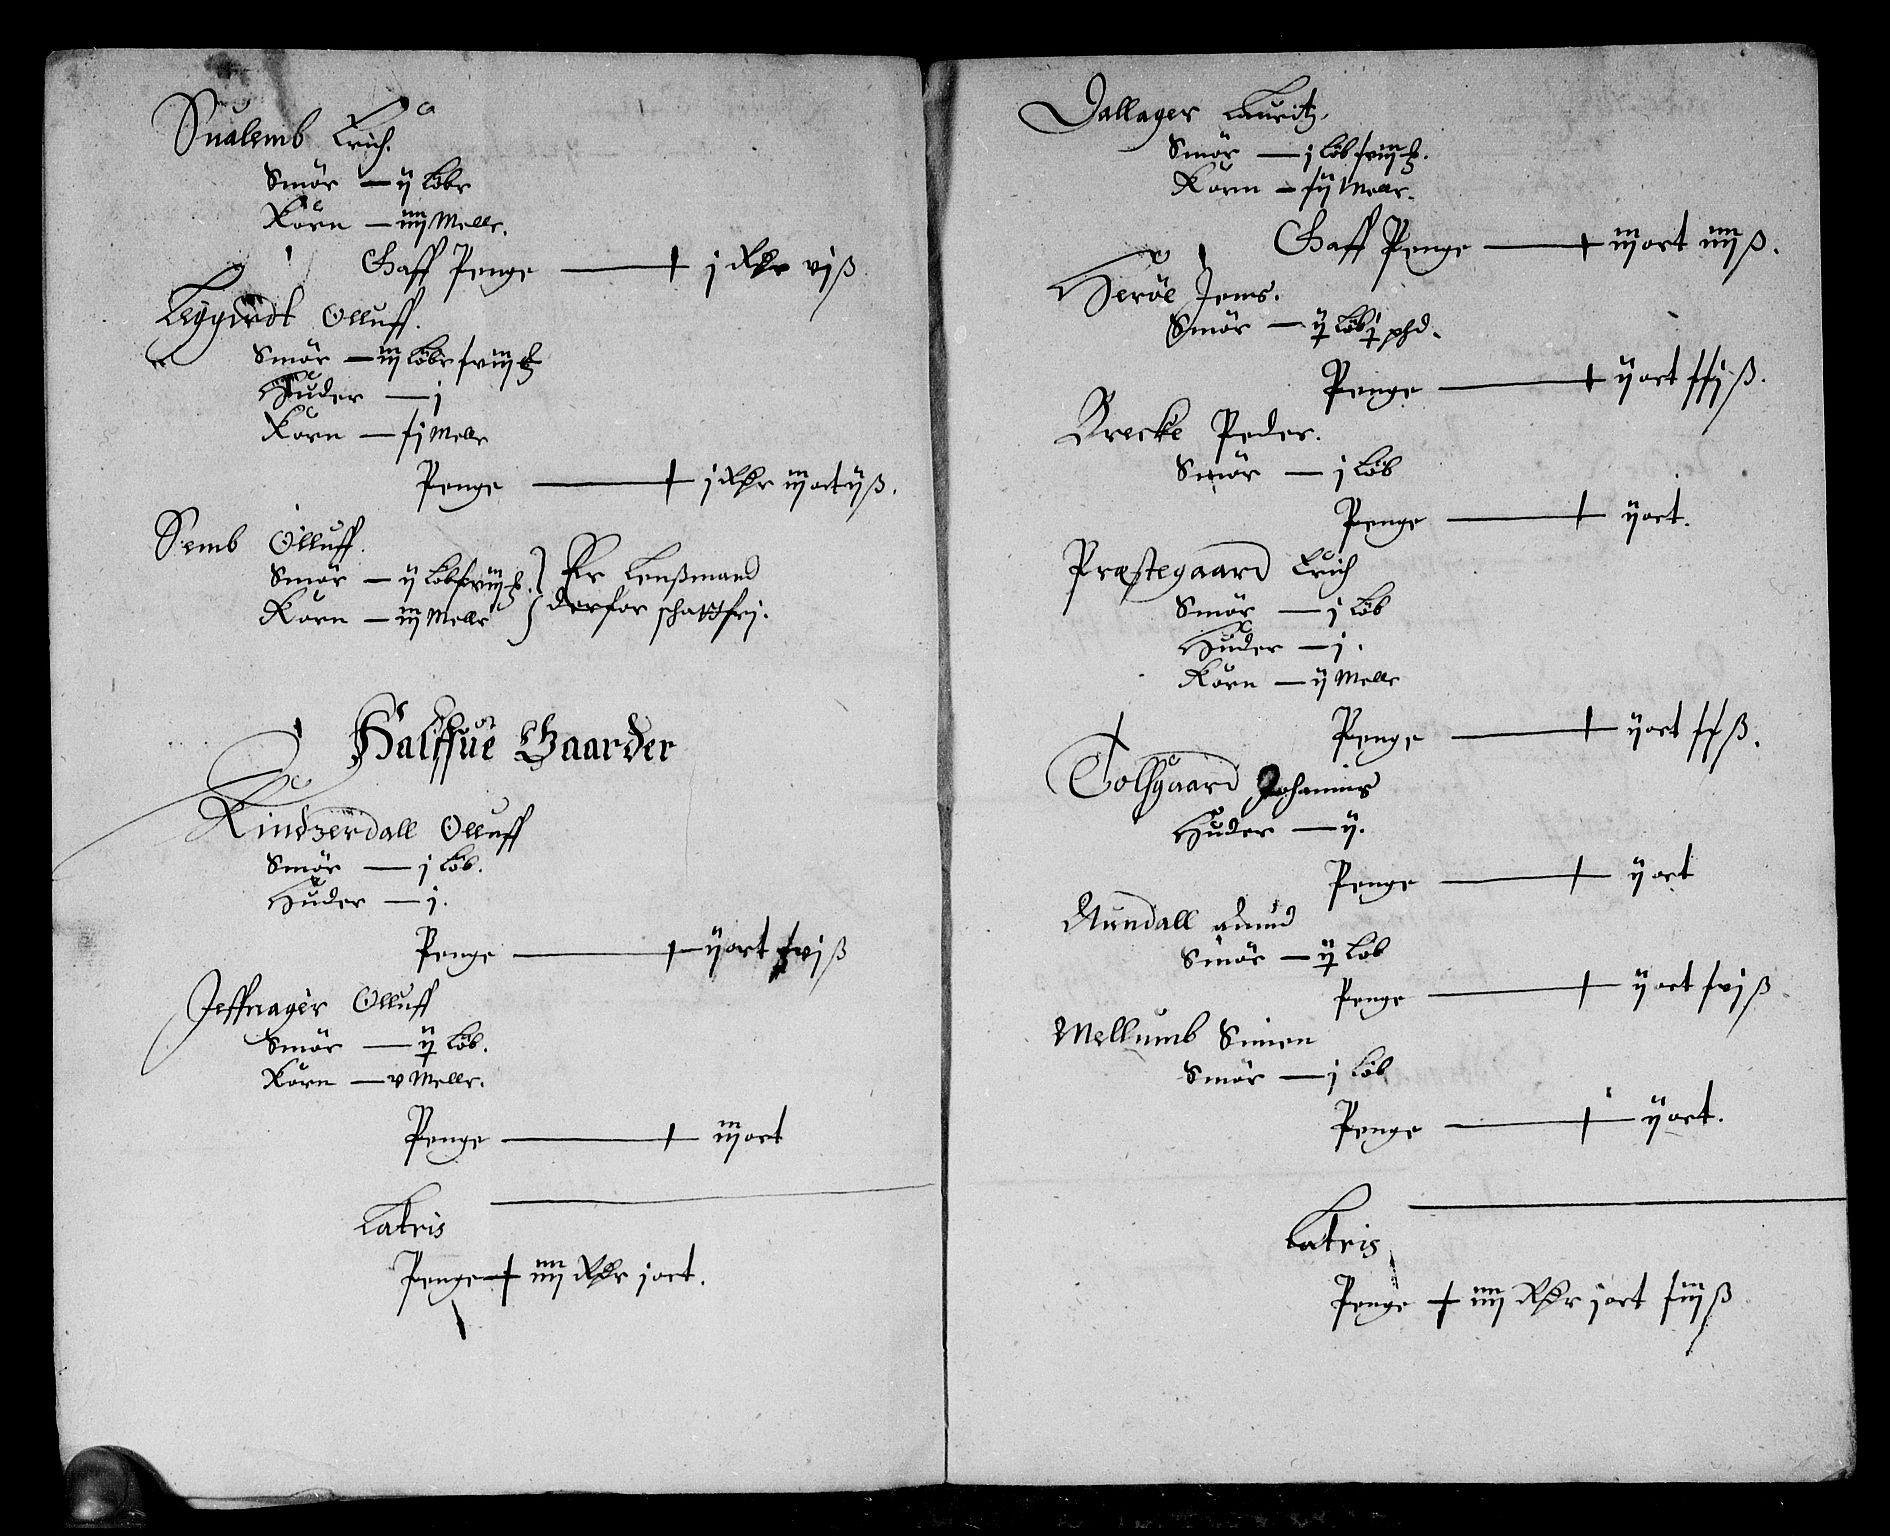 Sualemb Erich.
Smör — ij löbr
Korn — iiij Mellr.
Gaff Penge — j Rdr vjß
Eygirdt Olluff.
Smör — iij löbr xviij
Huder — j
Korn — xj Mellr
Penge — j Rdr iij ort ijß.
Semb Olluff.
Smör — ij löb xviij
Korn — iij Mellr
Er Lenßmand
derfor schattfrj.
Halffue Gaarder
Kindzerdall Olluff
Smör — j löb.
Huder — j.
Penge — ij ort xvjß
Jeffnager Olluff
Smör — ij löb.
Korn — v Mellr.
Penge — iij ort
Latris
Penge iiij Rdr j ort.
Dallager Lauritz.
Smör — j löb xviij
Korn — xij Mellr.
Gaff Penge — iij ort iiij ß.
Heröe Jens.
Smör — ij löb j phd.
Penge — ij ort xxjß.
Brecke Peder.
Smör — j löb
Penge — ij ort.
Præstegaard Erich
Smör — j löb
Huder — j.
Korn — ij Mellr
Penge — ij ort xxß.
Tolsgaard Johannis
Huder — ij.
Penge — ij ort
Nundall Amund
Smör — ij löb
Penge — ij ort xvjß
Mellumb Simen
Smör — j löb
Penge — ij ort.
Latris
Penge iiij Rdr j ort xiijß